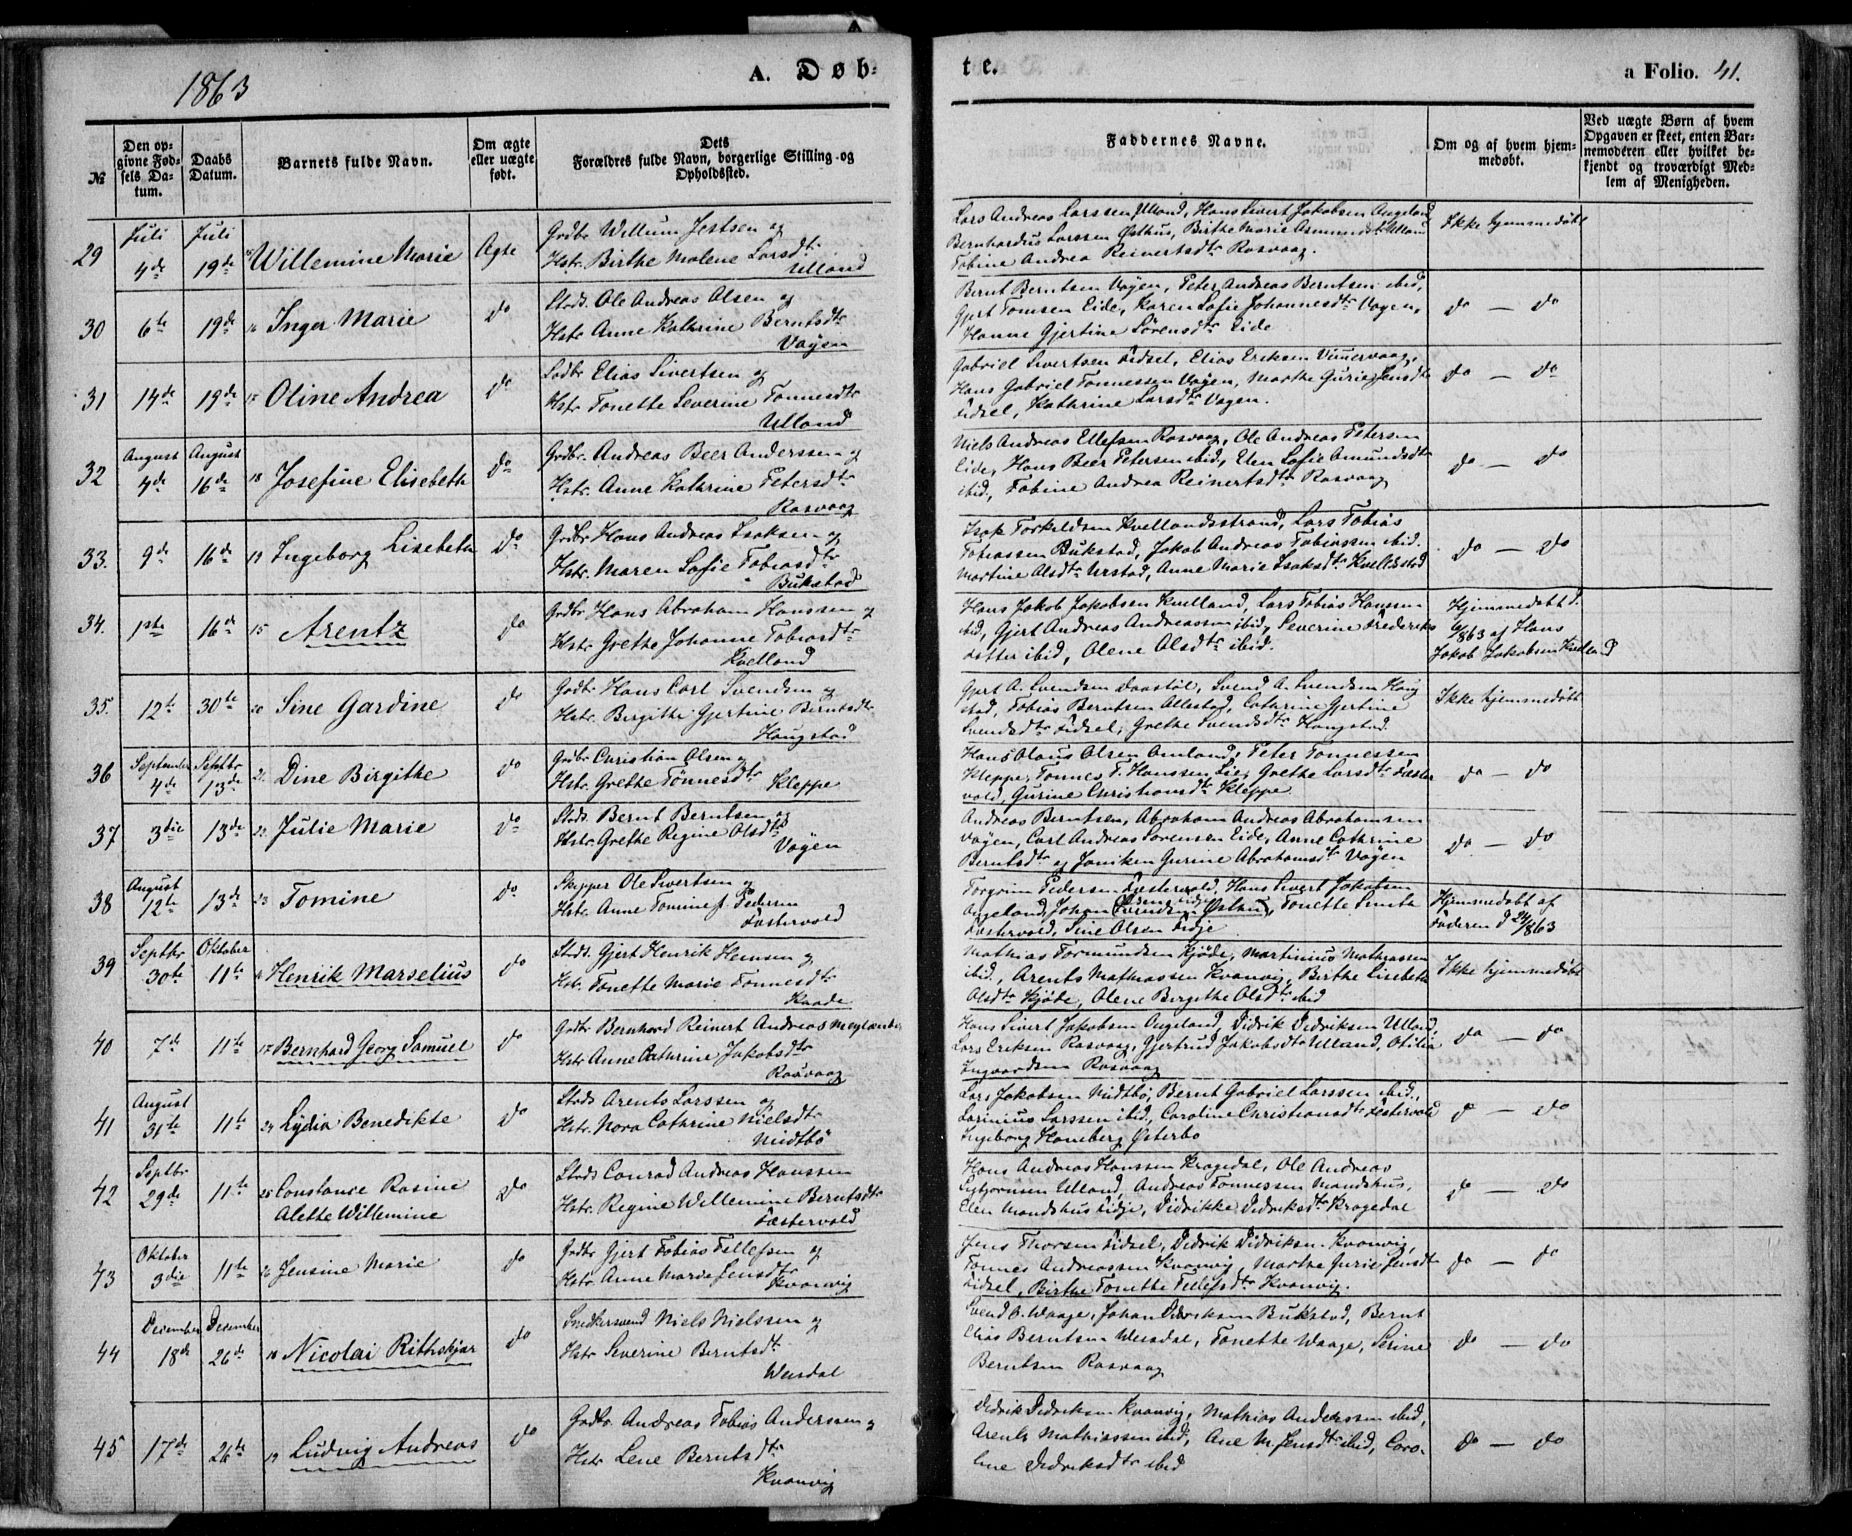 1863
A. Døb-
te.
a Folio. 41.
№
Den op-
givne Fød-
sels Da-
tum.
Daabs
Datum.
Barnets fulde Navn.
Om ægte
eller uægte
født.
Dets
Forældres fulde Navn, borgerlige Stilling og
Opholdssted.
Faddernes Navne.
Om og af hvem hjem-
medøbt.
Ved uægte Børn af hvem
Opgaven er skeet, enten Bar-
nemoderen eller hvilket be-
kjendt og troværdigt Med-
lem af Menigheden.
29
Juli
4de
Juli
19de
Willemine Marie
Ægte
Grdbr. Willum Jestsen og
Hstr. Birthe Malene Larsdtr
Ulland
Lars Andreas Larssen Ulland, Hans Sivert Jakobsen Augeland
Bernhardus Larssen Østhus, Birthe Marie Asmundsdtr Ulland
Tobine Andrea Reinertsdtr Rasvaag.
Ikke hjemmedøbt
30
6te
19de
16 Inger Marie
do
Strds. Ole Andreas Olsen og
Hstr Anne Kathrine Berntsdtr
Vågen
Bernt Berntsen Vågen, Peter Andreas Berntsen ibid,
Gjert Tomsen Eide, Karen Sofie Johannesdtr Vågen,
Hanne Gjertine Sørensdtr Eide
do — do
31
14de
19de
15 Oline Andrea
do
Grdbr Elias Sivertsen og
Hstr. Tonette Severine Tonnesdtr
Ulland
Gabriel Sivertsen Fidsel, Elias Eriksen Vimervaag,
Hans Gabriel Tonnessen Vågen, Marthe Gurie Jensdtr
Fidsel, Kathrine Larsdtr Vagen.
do — do
32
August
4de
August
16de
18 Josefine Elisebeth
do
Grdbr. Andreas Beer Anderssen og
Hstr. Anne Kathrine Petersdtr
Rasvaag
Niels Andreas Ellefsen Rasvaag, Ole Andreas Petersen
Eide, Hans Beer Petersen ibid, Elen Sofie Amundsdtr
ibid, Tobine Andrea Reinertsdtr Rasvaag
do — do
33.
9de
16de
19 Ingeborg Lisebeth
do
Grdbr Hans Andreas Isaksen og
Hstr. Maren Sofie Tobiasdtr
Bukstad
Isak Torkildsen Kvellandsstrand, Lars Tobias
Tobiassen Bukstad, Jakob Andreas Tobiassen ibid.
Martine Olsdtr Urstad, Anne Marie Isaksdtr
do — do
34.
1ste
16de
15 Arentz
do
Grdbr Hans Abraham Hanssen og
Hstr Grethe Johanne Tobiasdtr
Kvelland
Hans Jakob Jakobsen Kvelland, Lars Tobias Hanssen
ibid, Gjert Andreas Andreassen ibid, Severine Frederiks
datter ibid, Olene Olsdtr ibid.
Hjemmedøbt d.
/863 af Hans
Jakob Jakobsen Kvelland
35.
12te
30te
20 Sine Gardine
do
Grdbr Hans Carl Svendsen og
Hstr. Birgithe Gjertine Berntsdtr
Haugstad
Gjert A. Svendsen Daastøl, Svend A. Svendsen Haug
stad, Tobias Berntsen Allestad, Cathrine Gjertine
Svendsdtr Fidsel, Grethe Svendsdtr Haugstad.
Ikke hjemmedøbt
36
September
4de
Septbr
13de
21 Dine Birgithe
do
Grdbr Christian Olsen og
Hstr. Grethe Tønnesdtr Kleppe
Hans Olaus Olsen Omland, Peter Tonnessen
Kleppe, Tonnes T. Hanssen Lie, Grethe Larsdtr Fæster
vold, Gurine Christiansdtr Kleppe
do — do
37
3die
13de
22 Julie Marie
do
Strds. Bernt Berntsen og
Hstr. Grethe Regine Olsdtr
Vågen
Andreas Berntsen, Abraham Andreas Abrahamsen
Vågen, Carl Andreas Sørensen Eide, Anne Cathrine
Berntsdtr og Janiken Gurine Abrahamsdtr Vågen
do — do
38
August
12te
13de
23 Tomine
do
Skipper Ole Sivertsen og
Hstr. Anne Tomine f Pedersen
Fæstervold
Torgrim Pedersen Fæstervold, Hans Sivert Jakobsen
Augeland, Johan Svendsen Østhus, Tonette Smith
Fæstervold, Sine Olsen Fidje
Hjemmedøbt af
Faderen d 24/863
39
Septbr
30te
Oktober
11te
Henrik Marselius
do
Strds. Gjert Henrik Hemsen og
Hstr. Tonette Marie Tonnesdtr
Kaade
Mathias Tormundsen Kjøde, Martinius Mathiassen
ibid., Arents Mathiassen Kvanvig, Birthe Lisebeth
Olsdtr Kjøde, Olene Birgithe Olsdtr ibid
Ikke hjemmedøbt
40
7de
11te
17 Bernhard Georg Samuel
do
Grdbr Bernhard Reinert Andreas Meglænder
Hstr Anne Cathrine Jakobsdtr
Rasvaag
Hans Sivert Jakobsen Augeland, Didrik Didriksen Ulland,
Lars Eriksen Rasvaag, Gjertrud Jakobsdtr Ulland, Otilia
Ingvardsen Rasvaag
do — do
41
August
31te
11te
24 Lydia Benedikte
do
Strds Arents Larssen og
Hstr. Nora Cathrine Nielsdtr
Midtbø
Lars Jakobsen Midtbø, Bernt Gabriel Larssen ibid.,
Larinius Larssen ibid, Caroline Christiansdtr Fæstervold
Ingeborg Haneberg Østerbø
do — do
42
Septbr
29de
11te
25 Constance Rasine
Alette Willemine
do
Strds Conrad Andreas Hanssen
Hstr. Regine Willemine Berntsdtr
Fæstervold
Hans Andreas Hanssen Kragedal, Ole Andreas
Ulland, Andreas Tonnessen Mandshus,
Elen Mandshus Fidje, Didrikke Didriksdtr Kragedal
do — do
43
Oktober
3die
11te
26 Jensine Marie
do
Grdbr Gjert Tobias Tellefsen og
Hstr. Anne Marie Jensdtr
Kvanvig
Jens Thorsen Fidsel, Didrik Didriksen Kvanvig,
Tonnes Andreassen Kvanvig, Marthe Gurie Jensdtr
Fidsel, Birthe Tonette Tellefsdtr Kvanvig.
do — do
44
December
18de
December
26de
18 Nicolai Rithskjær
do
Snedkersvend Niels Nielssen og
Hstr Severine Berntsdtr
Weisdal
Svend O. Waage, Johan Didriksen Bukstad, Bernt
Elias Berntsen Weisdal, Tonette Waage, Serine
Berntsen Rasvaag
do — do
45
17de
26de
19 Ludvig Andreas
do
Grdbr. Andreas Tobias Anderssen og
Hstr Lene Berntsdtr
Kvanvig
Didrik Didriksen Kvanvig, Mathias Anderssen ibid,
Arents Mathiassen ibid, Ane M. Jensdtr ibid, Caro-
line Didriksdtr ibid
do — do